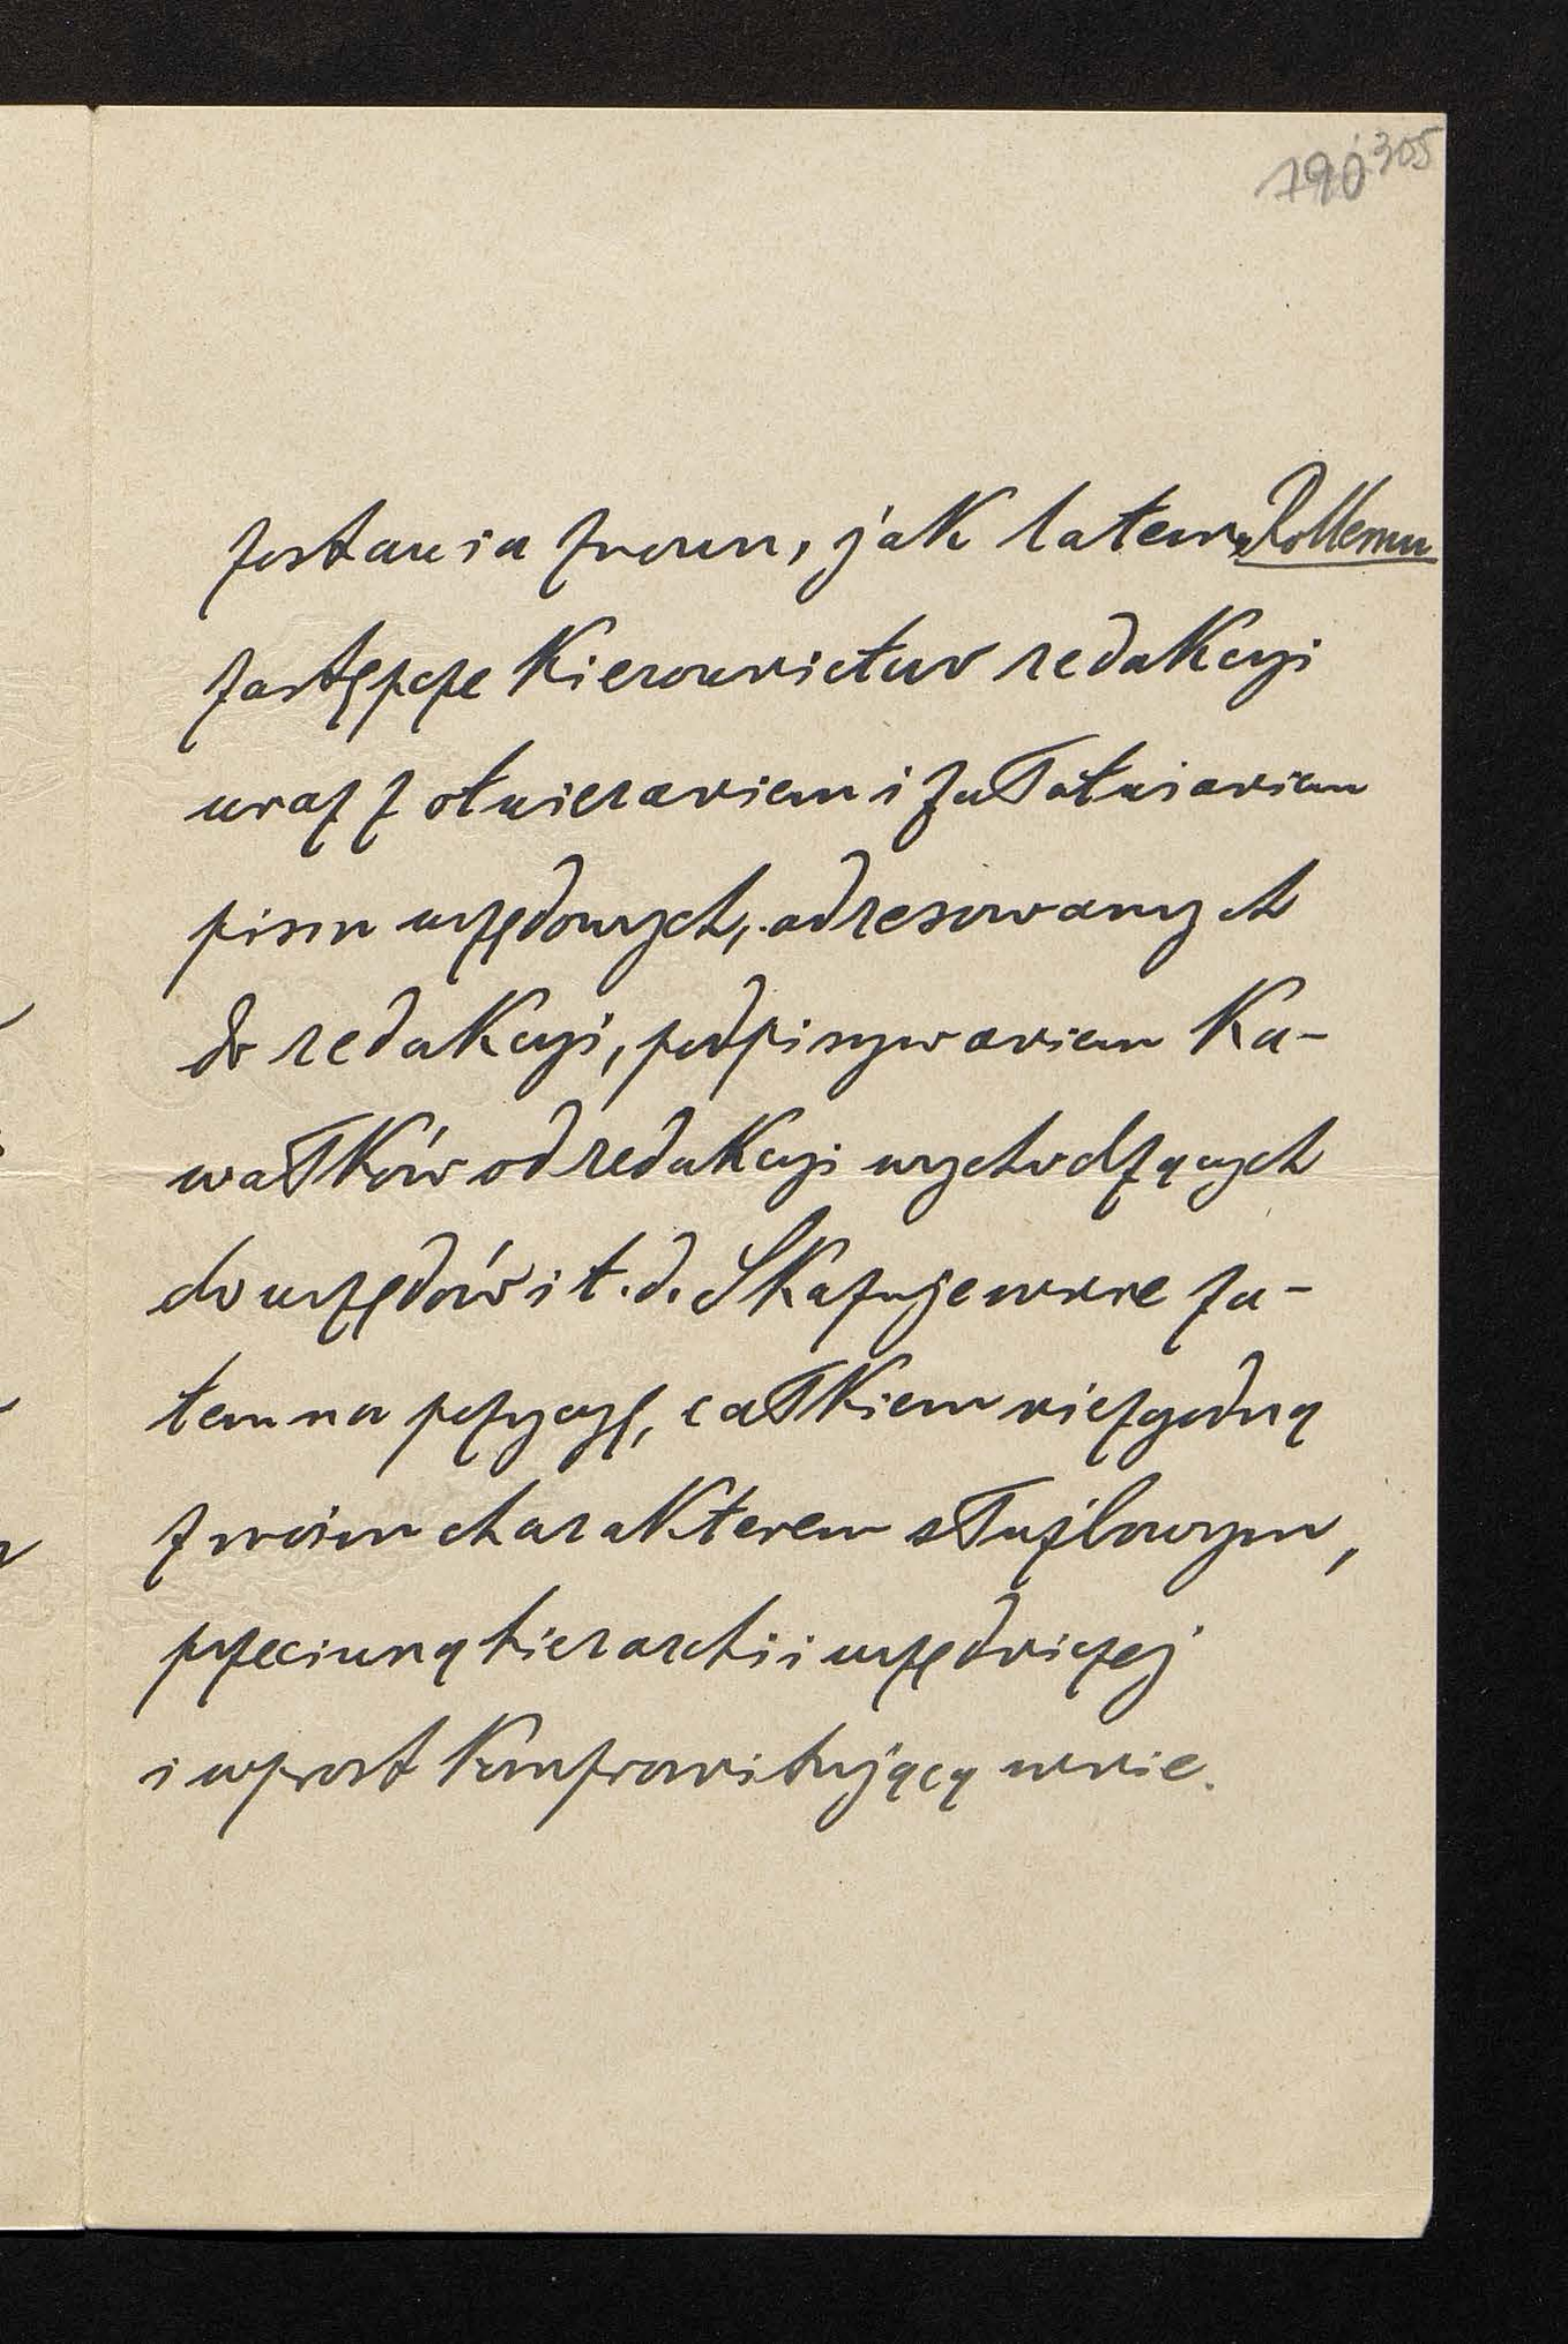 190 305
zostawia znown, jak latem, Rollemu
zastępcze kierownictwo redakcyi
wraz z otwieraniem i załatwianiem
pism urzędowych, adresowanych
do redakcyi, podpisywaniem ka-
wałków od redakcyi wychodzących
do urzędów i t. d. Skazuje mnie za-
tem na pozycyę, całkiem niezgodną
z moim charakterem służbowym,
przeciwną hierarchii urzędniczej
i wprost kompromitującą mnie.